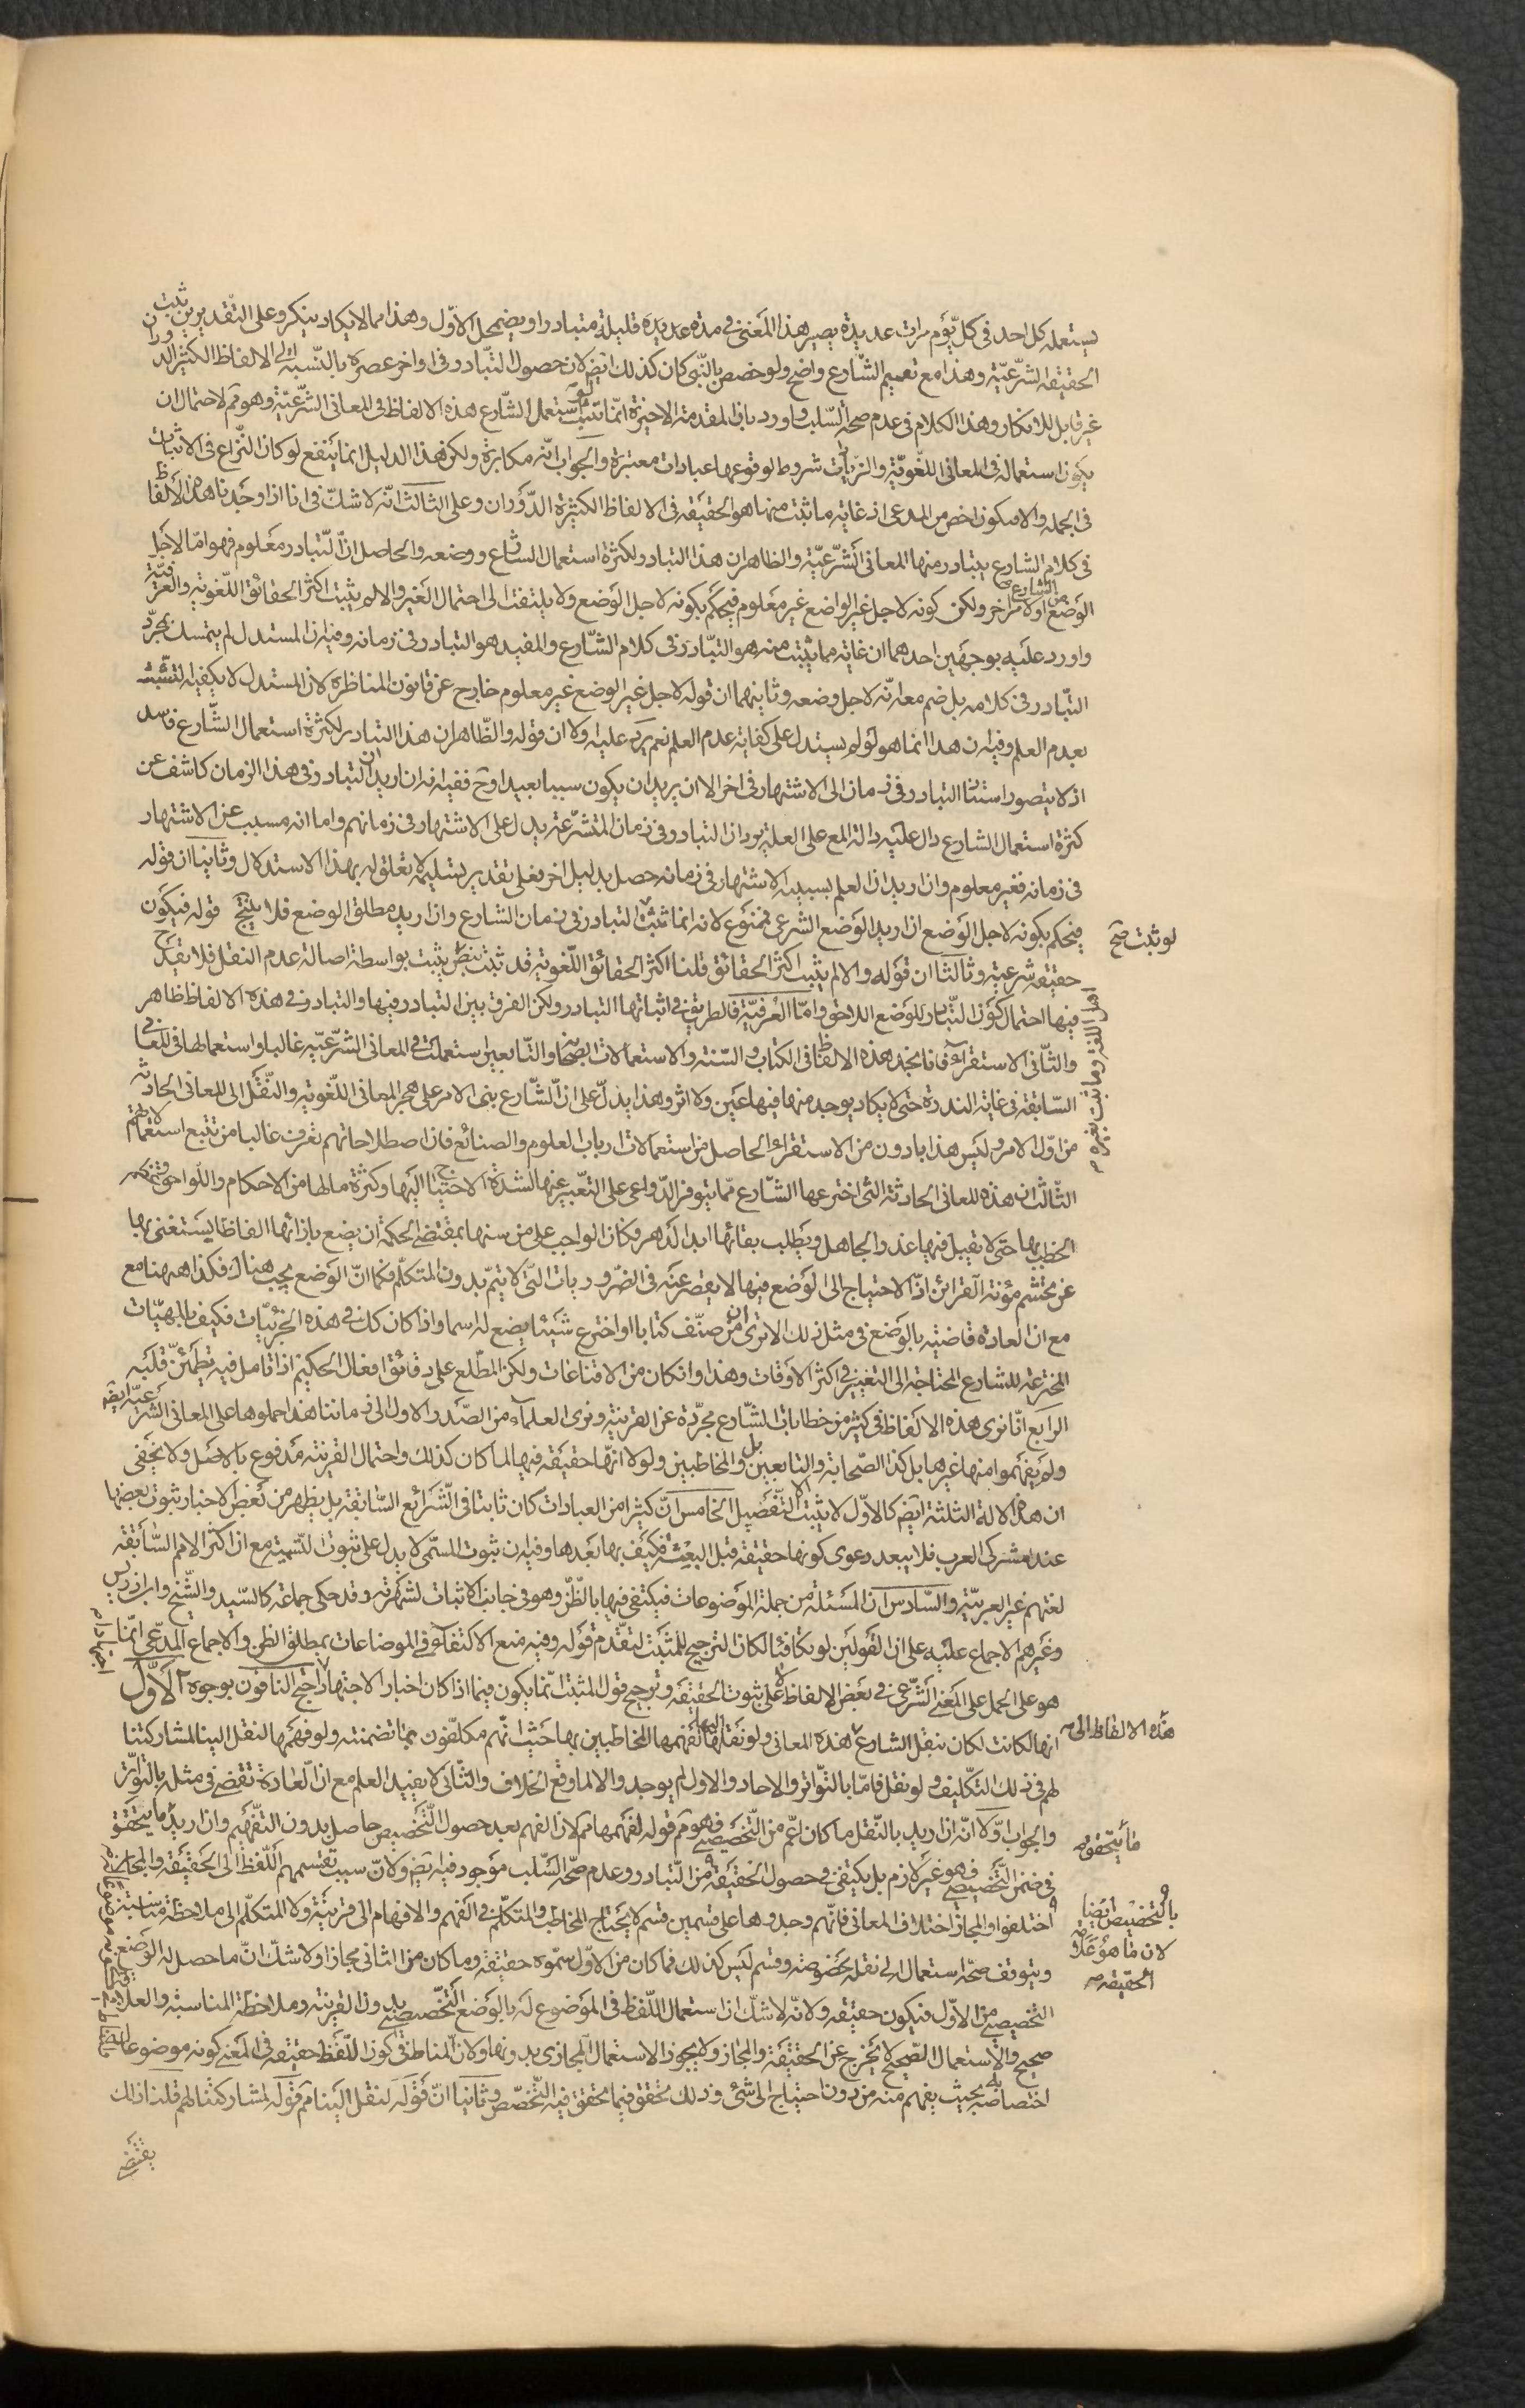 يستعمله كل احد فى كل يوم مرات عديدة يصير هذا المعنى فى مدة عديدة قليلة متبادرا ويضمحل الاوّل وهذا مما لا يكاد ينكر وعلى التقديرين ثبت
الحقيقة الشرعيّة وهذا مع تعميم الشّارع واضح ولو خصص بالنّبى كان كذلك ايض لان حصول التبادر فى اواخر عصره بالنّسبة الى الالفاظ الكثير الدوران
غير قابل للانكار وهذا الكلام فى عدم صحة السّلب واورد بان المقدمة الاخيرة انّما تتم لو استعمل الشّارع هذه الالفاظ فى المعانى الشّرعيّة وهو مم لاحتمال ان
يكون استعماله فى المعانى اللّغويّة والزيادات شروط لوقوعها عبادات معتبرة والجواب انّه مكابرة ولكن هذا الدليل انما ينفع لو كان النّزاع فى الاثبات
فى الجملة والا فيكون اخص من المدعى اذ غاية ما ثبت منها هو الحقيقة فى الالفاظ الكثيرة الدّوران وعلى الثالث انّه لا شكّ فى انا اذا وجدنا هذه الالفاظ
فى كلام الشارع يتبادر منها المعانى الشّرعيّة والظاهر ان هذا التبادر لكثرة استعمال الشارع ووضعه والحاصل انّ التّبادر معلوم فهو امّا لاجل
الوضع من الشارع او لامر اخر ولكن كونه لاجل غير الواضع غير معلوم فيحكم بكونه لاجل الوضع ولا يلتفت الى احتمال الغير والا لم يثبت اكثر الحقائق اللّغوية والعرفيّة
واورد عليه بوجهين احدهما ان غاية مما يثبت منه هو التبادر فى كلام الشّارع والمفيد هو التبادر فى زمانه وفيه ان المستدل لم يتمسك بمجرّد
التبادر فى كلامه بل ضم معه انّه لاجل وضعه وثانيهما ان قوله لاجل غير الوضع غير معلوم خارج عن قانون المناظرة لان المستدل لا يكفيه التشبّث
بعدم العلم وفيه ان هذا انما هو لو لم يستدل على كفاية عدم العلم نعم يرد عليه اولا ان قوله والظّاهر ان هذا التبادر لكثرة استعمال الشّارع فاسد
اذ لا يتصور استناد التبادر فى زمان الى الاشتهار فى اخر الا ان يريد ان يكون سببا بعيدا وح ففيه انه ان اريد ان التبادر فى هذا الزمان كاشف عن
كثرة استعمال الشارع دال عليه دلالة المع على العلة يرد ان التبادر فى زمان المتشرّعة يدل على الاشتهار فى زمانهم واما انه مسبب عن الاشتهار
فى زمانه فغير معلوم وان اريد ان العلم بسببية الاشتهار فى زمانه حصل بدليل اخر فعلى تقدير تسليمه لا تعلق له بهذا الاستدلال وثانيا ان قوله
فيحكم بكونه لاجل الوضع ان اريد الوضع الشرعى فممنوع لانه انما ثبت التبادر فى زمان الشارع وان اريد مطلق الوضع فلا ينتج قوله فيكون
لو ثبت صح
حقيقة شرعية وثالثا ان قوله والا لم يثبت اكثر الحقائق قلنا اكثر الحقائق اللّغوية قد ثبت بنص يثبت بواسطة اصالة عدم النقل فلا يقدح
فيها احتمال كون التّبادر للوضع اللاحق وامّا العرفيّة فالطريق فى اثباتها التبادر ولكن الفرق بين التبادر فيها والتبادر فى هذه الالفاظ ظاهر
اهل اللغة وما ثبت بغيره
والثّانى الاستقراء فانا نجد هذه الالفاظ فى الكتاب والسّنة والاستعمالات الصحابة والتّابعين استعملت فى المعانى الشّرعيّة غالبا واستعمالها فى المعانى
السّابقة فى غاية الندرة حتى لا يكاد يوجد منها فيها عين ولا اثر وهذا يدلّ على انّ الشّارع بنى الامر على هجر المعانى اللّغوية والنّقل الى المعانى الحادثة
من اوّل الامر وليس هذا بادون من الاستقراء الحاصل من استعمالات ارباب العلوم والصنائع فان اصطلاحاتهم تعرف غالبا من تتبع استعمالاتهم
الثّالث ان هذه المعانى الحادثة التى اخترعها الشّارع ممّا يتوفر الدّواعى على التعبير عنها لشدة الاحتياج اليها وكثرة ما لها من الاحكام واللّواحق
الخطاب بها حتى لا يقبل فيها عذر الجاهل ويطلب بقائها ابد الدّهر فكان الواجب على من سنها بمقتضى الحكمة ان يضع بازائها الفاظا يستغنى بها
عن تجشم مؤنة القرائن اذ الاحتياج الى الوضع فيها لا يقصر عنه فى الضّروريات الّتى لا يتمّ بدون المتكلّم فكما انّ الوضع يجب هناك فكذا ههنا مع
مع ان العادة قاضية بالوضع فى مثل ذلك الا ترى ان من صنّف كتابا او اخترع شيئا يضع له اسما واذا كان كل فى هذه الجزئيّات فكيف بالمهيّات
المخترعة للشارع المحتاجة الى التغيير فى اكثر الاوقات وهذا وان كان من الاقناعات ولكن المطّلع على دقائق افعال الحكيم اذا تامل فيه يطمئنّ قلبه
الرابع انّا نرى هذه الالفاظ فى كثير من خطابات الشّارع مجرّدة عن القرينة ونرى العلماء من الصّدر الاول الى زماننا هذا حملوها على المعانى الشّرعيّة ايض
ولم يفهموا منها غيرها بل كذا الصّحابة والتابعين بل والمخاطبين ولولا انّها حقيقة فيها لما كان كذلك واحتمال القرينة مدفوع بالاصل ولا يخفى
ان هذه الادلة الثلثة ايض كالاوّل لا يثبت الا التّفصيل الخامس انّ كثيرا من العبادات كان ثابتا فى الشّرائع السّابقة بل يظهر من بعض الاخبار ثبوت بعضها
عند مشركى العرب فلا يبعد دعوى كونها حقيقة قبل البعثة فكيف بها بعدها وفيه ان ثبوت المسمّى لا يدل على ثبوت التّسمية مع ان اكثر الامم السّابقة
لغتهم غير العربيّة والسّادس ان المسئلة من جملة الموضوعات فيكتفى فيها بالظّنّ وهو فى جانب الاثبات لشهرته وقد حكى جماعة كالسّيد والشّيخ وابن ادريس
وغيرهم الاجماع عليه على ان القولين لو تكافئا لكان الترجيح للمثبت لتقدم قوله وفيه منع الاكتفاء فى الموضاعات بمطلق الظن والاجماع المدّعى انّما
هو على الحمل على المعنى الشّرعى فى بعض الالفاظ لا على ثبوت الحقيقة وترجيح قول المثبت انّما يكون فيما اذا كان اخبارا لا اجتهادا احتج النافون بوجوه الاوّل
انها لكانت لكان بنقل الشارع هذه المعانى ولو نقلها لفهمها المخاطبين بها حيث انّهم مكلّفون بما تضمنته ولو فهّمها لنقل الينا لمشاركتنا
هذه الالفاظ الى
لهم فى ذلك التّكليف ولو نقل فامّا بالتّواتر والاحاد والاول لم يوجد والا لما وقع الخلاف والثّانى لا يفيد العلم مع انّ العادة تقضى فى مثله بالتواتر
والجواب اوّلا انّه ان اريد بالنّقل ما كان اعّم من التّخصيصى فهو مم قوله لفهمها مم لان الفهم بعد حصول التّخصيص حاصل بدون التّفهيم وان اريد ما يتحقق
ما يتحقق
فى ضمن التّخصيصى فهو غير لازم بل يكتفى فى حصول الحقيقة من التّبادر وعدم صحّة السّلب موجود فيه ايض ولانّ سبب تقسيمهم اللّفظ الى الحقيقة والمجاز
بالتّخصيص ايضا
لان ما هو علامة
الحقيقة
اختلفوا والمجاز اختلاف المعانى فانّهم وجدوها على قسمين قسم لا يحتاج المخاطب والمتكلّم فى الفهم والافهام الى قرينة ولا المتكلّم الى ملاحظة مناسبة
ويتوقف صحّة استعماله الى نقله بخصوصه وقسم ليس كذلك فما كان من الاوّل سمّوه حقيقة وما كان من الثانى مجازا ولا شكّ انّ ما حصل له الوضع
التخصيصى من الاوّل فيكون حقيقة ولانّه لا شكّ ان استعمال اللّفظ فى الموضوع له بالوضع التّخصيصى بدون القرينة وملاحظة المناسبة والعلاقة
صحيح والاستعمال الصّحيح لا يخرج عن الحقيقة والمجاز ولا يجوز الاستعمال المجازى بدونها ولانّ المناط فى كون اللّفظ حقيقة فى المعنى كونه موضوعا
اختصاصه به بحيث يفهم منه من دون احتياج الى شئ وذلك محقق فيما تحقق فيه التّخصّص وثانيا انّ قوله لنقل الينا مم قوله لمشاركتنا لهم قلنا ذلك
يقتضى